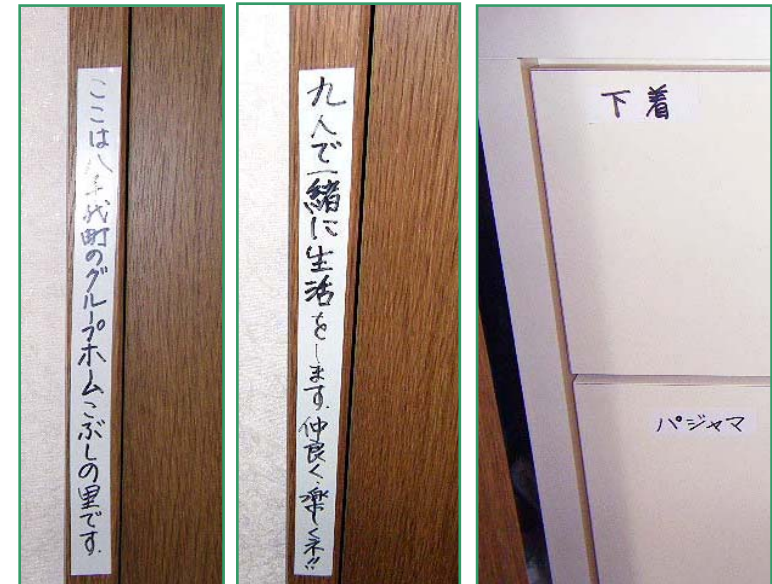 ここは八千代町のグループホームこぶしの里です.
九人で一緒に生活をします.仲良く、楽しくネ!!
下着
パジャマ